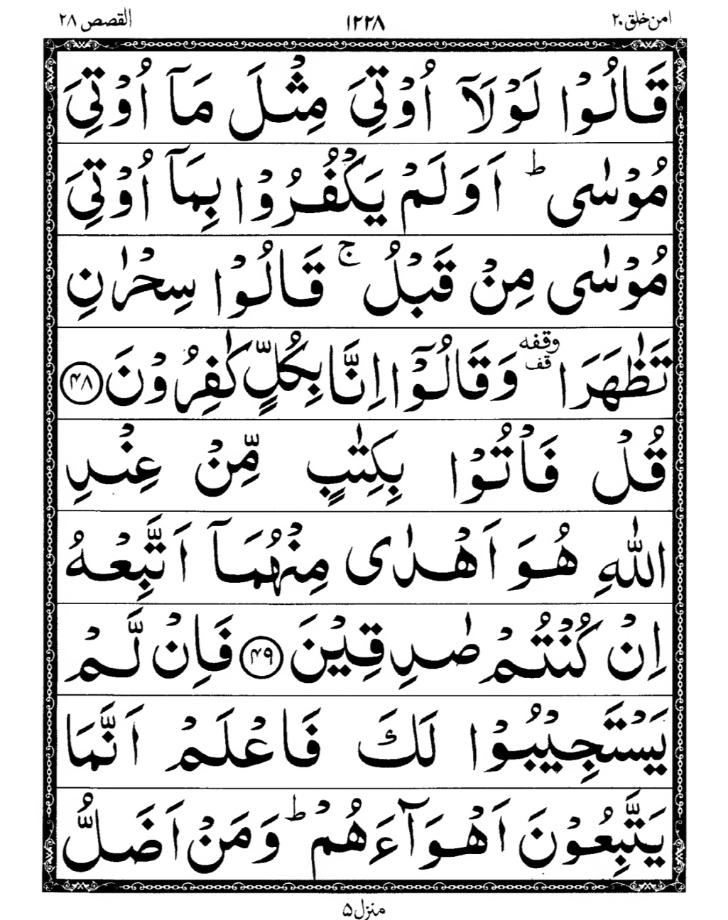 امن خلق ٢٠ ١٢٢٨ القصص ٢٨
قَالُوْا لَوْلَاۤ اُوْتِیَ مِثْلَ مَاۤ اُوْتِیَ
مُوْسٰی ؕ اَوَلَمْ یَكْفُرُوْا بِمَاۤ اُوْتِیَ
مُوْسٰی مِنْ قَبْلُ ۚ قَالُوْا سِحْرٰنِ
تَظٰهَرَا وقفه قف وَقَالُوْۤا اِنَّا بِكُلٍّ كٰفِرُوْنَ ﴿۴۸﴾
قُلْ فَاْتُوْا بِكِتٰبٍ مِّنْ عِنْدِ
اللّٰهِ هُوَ اَهْدٰی مِنْهُمَاۤ اَتَّبِعْهُ
اِنْ كُنْتُمْ صٰدِقِیْنَ ﴿۴۹﴾ فَاِنْ لَّمْ
یَسْتَجِیْبُوْا لَكَ فَاعْلَمْ اَنَّمَا
یَتَّبِعُوْنَ اَهْوَآءَهُمْ ؕ وَمَنْ اَضَلُّ
منزل ۵